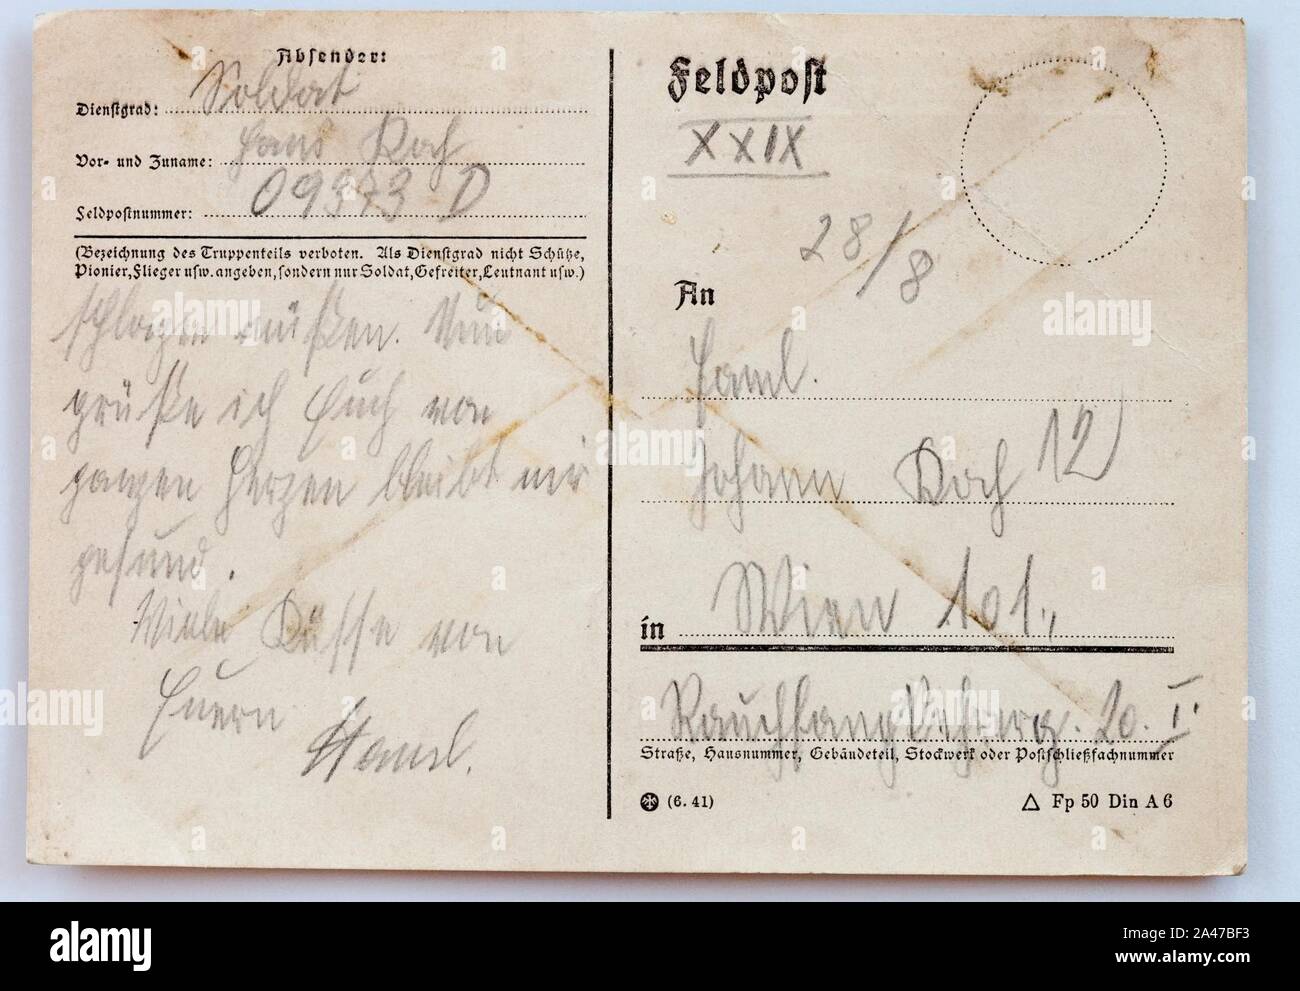 Absender:
Dienstgrad: Soldat
Vor- und Zuname: Hans Koch
Feldpostnummer: 09373 D
(Bezeichnung des Truppenteils verboten. Als Dienstgrad nicht Schütze,
Pionier, Flieger usw. angeben, sondern nur Soldat, Gefreiter, Leutnant usw.)
schlagen müßen. Nun
grüße ich Euch von
ganzen Herzen bleibt mir
gesund.
Viele Küsse von
Euern
Hansl.
Feldpost
XXIX
28/8
An
Faml.
Johann Koch 12
in Wien 101.,
Rauchfangkehrerg. 20. I.
Straße, Hausnummer, Gebäudeteil, Stockwerk oder Postschließfachnummer
(6. 41)
Fp 50 Din A 6
alamy
alamy
alamy
alamy
Image ID: 2A47BF3
www.alamy.com